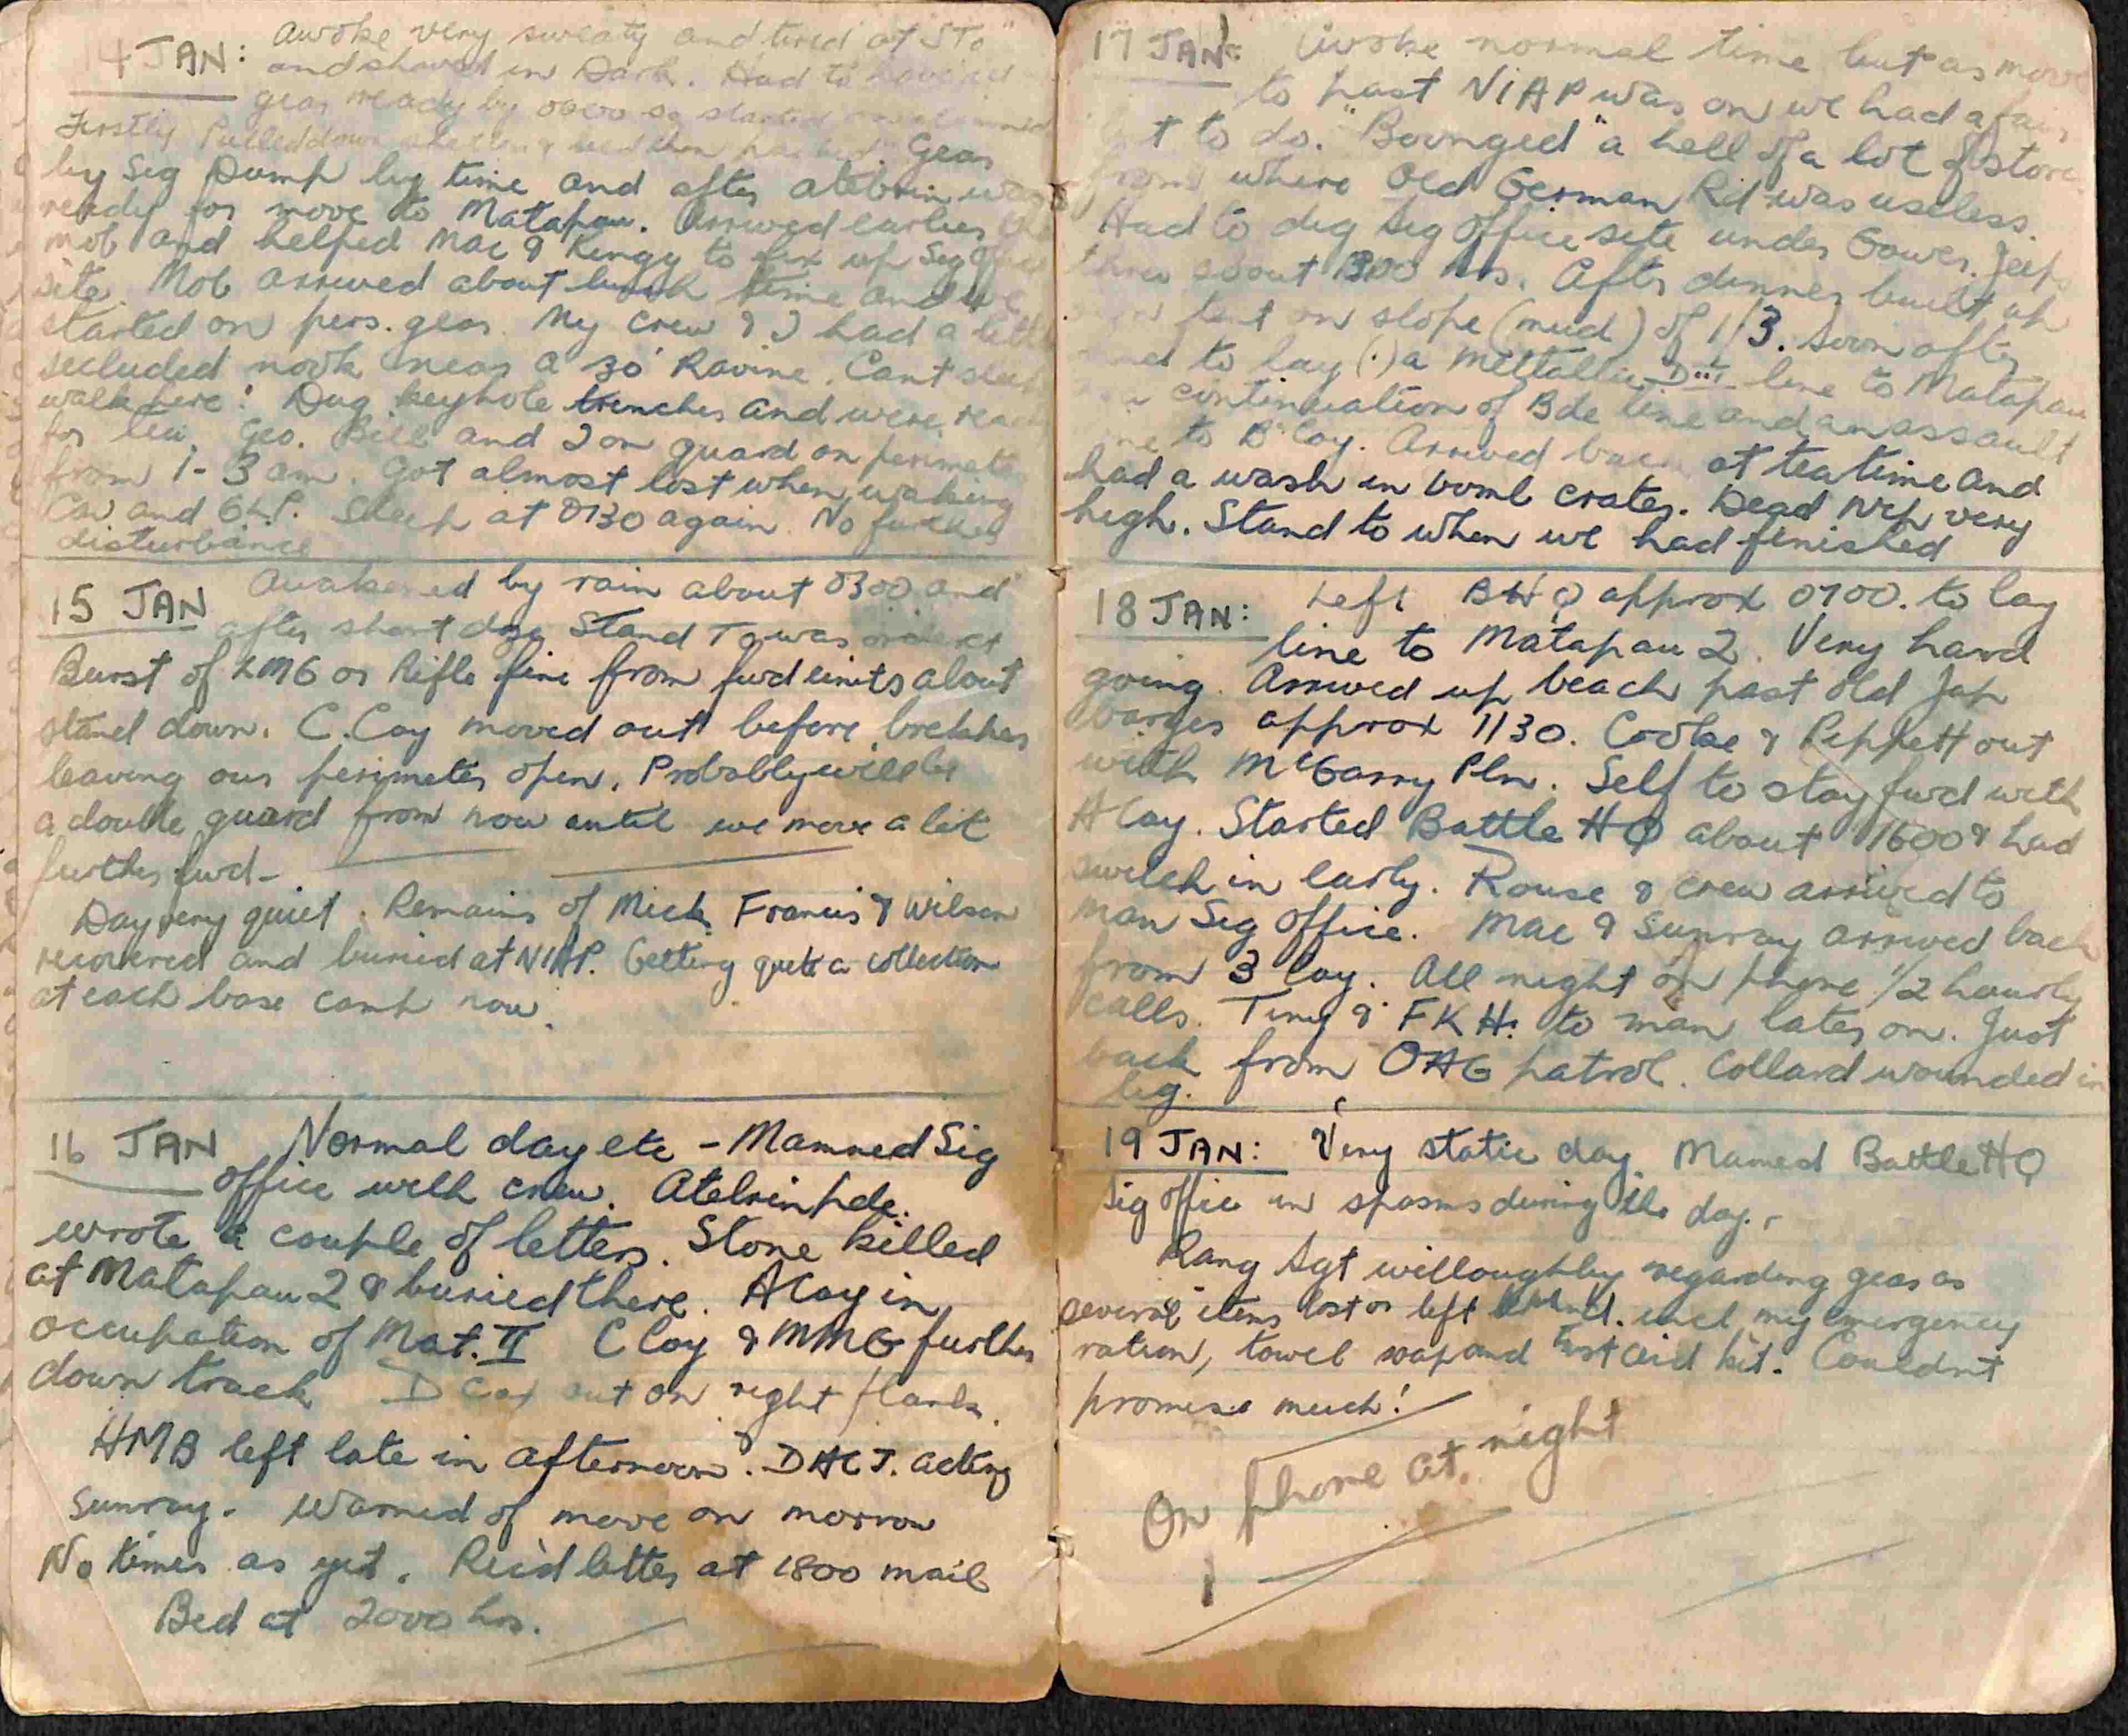 14 JAN: Awoke very sweaty and tired at "STo"
and shaved in Dark. Had to have
gear ready by 0800 so started
Firstly Pulled down then packed. Gear
by Sig Dump by time and after atebrin was
ready for move to Matapau. Arrived earlier
mob and helped Mac & Kingy to fix up Sig Office
site. Mob arrived about lunch time and we
started on pers. gear. My crew & I had a little
secluded nook near a 30' Ravine. Cant sleep
walk here! Dug keyhole trenches and were ready
for tea. Geo. Bill and I on guard on perimeter
from 1-3 am. Got almost lost when waking
and Sleep at 0130 again. No further
disturbance
15 JAN Awakened by rain about 0300 and
after short doze Stand To was
Burst of LMG or Rifle fire from fwd units about
stand down. C. Coy moved out before brekker
leaving our perimeter open. Probably will be
a double guard from now until we move a bit
further fwd -
Day very quiet. Remains of Mick Francis & Wilson
recovered and buried at NIAP. Getting quite a collection
at each base camp now.
16 JAN Normal day etc - Mamned Sig
office with crew. Atebrin pde.
wrote a couple of letters. Stone killed
at Matapau 2 & buried there. A Coy in
occupation of Mat. II C Coy & MMG further
down track D Coy out on right flank.
HMB left late in afternoon. DACJ. acting
Sunray. Warned of move on morrow
No times as yet. Rec'd letter at 1800 mail
Bed at 2000 hrs.
17 JAN: Awoke normal time but as move
to past NIAP was on we had a fair
t to do. "Boonged" a hell of a lot of stores
from where Old German Rd was useless.
Had to dig Sig Office site under Gower. Jeep
thru about 1300 hrs. After dinner built up
tent on slope (mud) of 1/3. Soon after
to lay (.) a Mettallic D... line to Matapau
continuation of Bde line and an assault
to B Coy. Arrived back at tea time and
had a wash in bomb crater. Dead Nip very
high. Stand to when we had finished
18 JAN: Left BHQ approx 0700. to lay
line to Matapau 2. Very hard
going. Arrived up beach past old Jap
barges approx 1130. Cooke & Peppett out
with McGarry Pln. Self to stay fwd with
A Coy. Started Battle HQ about 1600 & had
switch in early. Rouse & crew arrived to
man Sig Office. Mac & Sunray arrived back
from 3 Coy. All night on phone 1/2 hourly
calls. Tiny & FKH: to man later on. Just
back from OAG patrol. Collard wounded in
leg.
19 JAN: Very static day. Manned Battle HQ
Sig Office in spasms during the day.
Rang Sgt Willoughby regarding gear as
several items lost or left behind. incl my emergency
ration, towel soap and first aid kit. Couldnt
promise much!
On phone at night